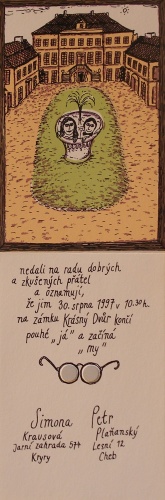 nedali na radu dobrých
a zkušených přátel
a oznamují,
že jim 30. srpna 1997 v 10.30 h.
na zámku Krásný Dvůr končí
pouhé „já” a začíná
„my”
Simona Petr
Krausová Plaňanský
Jarní zahrada 574 Lesní 12
Kryry Cheb